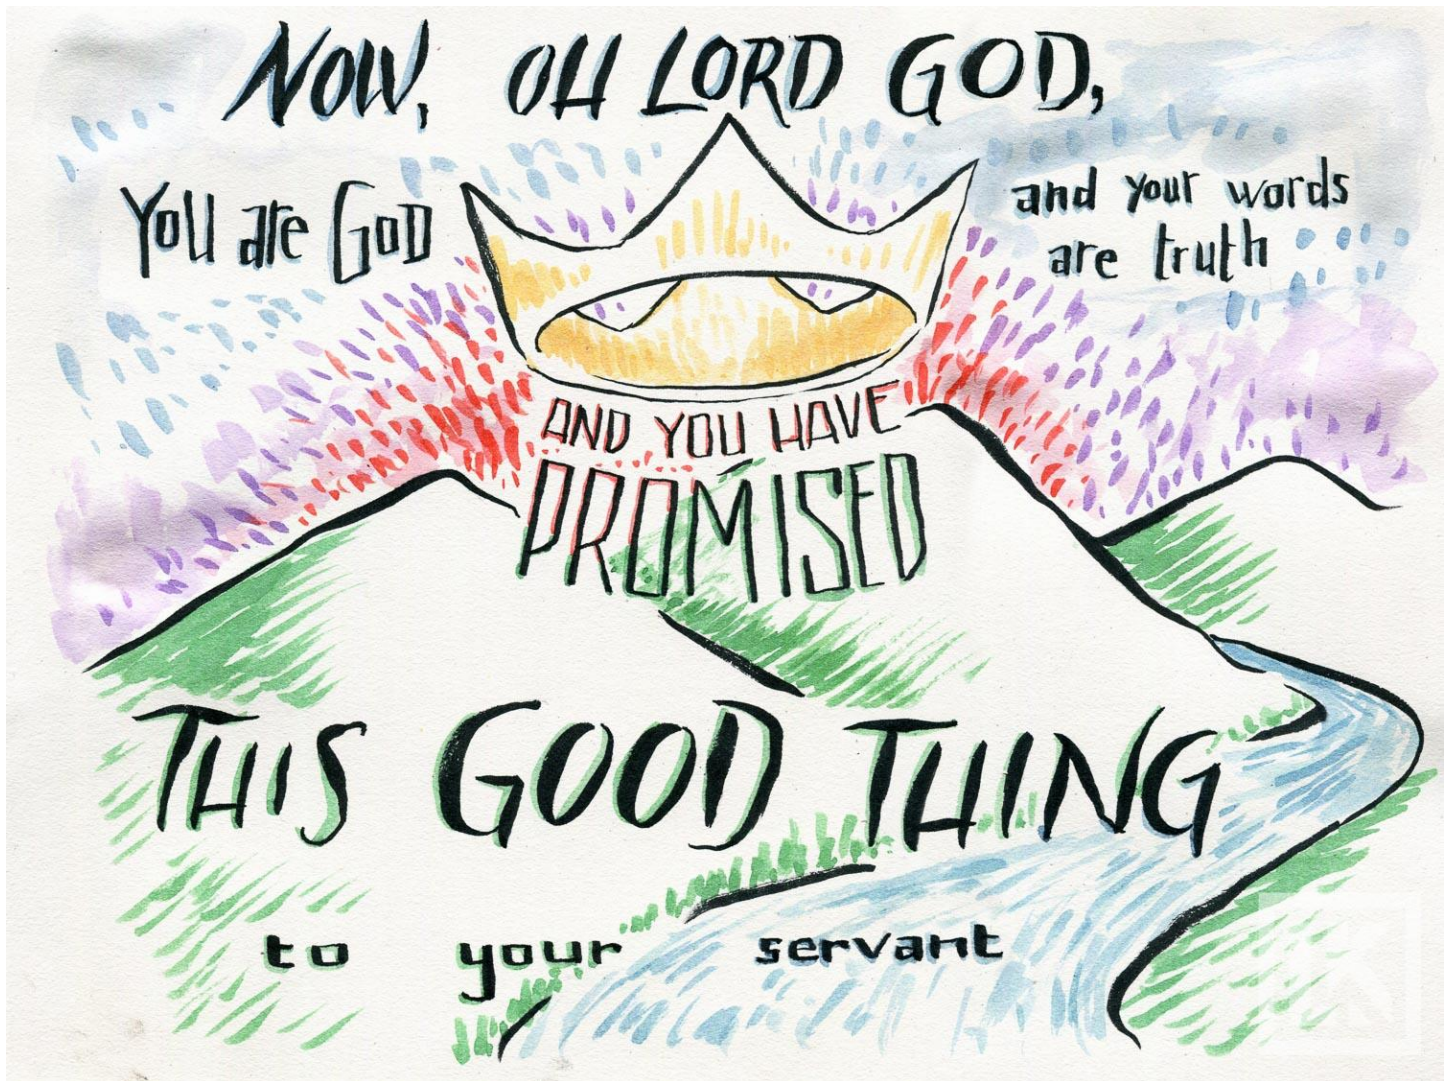 NOW, OH LORD GOD,
You are GOD
and your words
are truth
AND YOU HAVE
PROMISED
THIS GOOD THING
to your servant